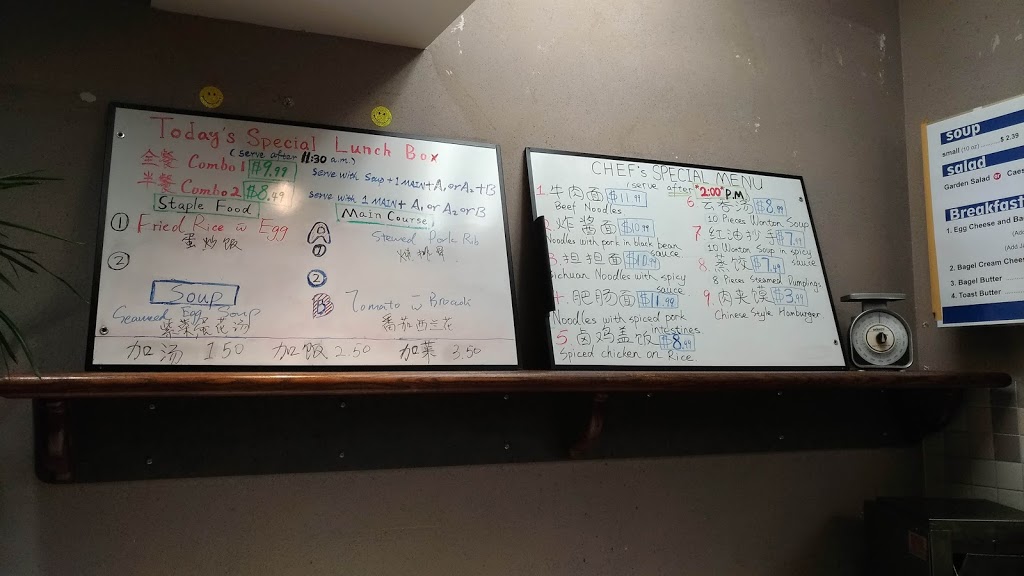 Today's Special Lunch Box
(serve after 11:30 a.m.)
全餐 Combo1 $9.99 serve with Soup + 1 MAIN + A1 or A2 + B
半餐 Combo2 $8.49 serve with 1 MAIN + A1 or A2 or B
Staple Food
Main Course
① Fried Rice w Egg
蛋炒饭
A
1
Stewed Pork Rib
烧排骨
②
2
Soup
B
Tomato w Brocoli
番茄西兰花
Seaweed Egg Soup
紫菜蛋花汤
加汤 1.50 加饭 2.50 加菜 3.50
CHEF's SPECIAL MENU
(serve after "2:00" P.M
1. 牛肉面 $11.99
Beef Noodles
2. 炸酱面 $10.99
Noodles with pork in black bean sauce
3. 担担面 $10.99
sichuan Noodles with spicy sauce
4. 肥肠面 $11.99
Noodles with spiced pork intestines
5. 卤鸡盖饭 $8.99
Spiced chicken on Rice
6. 云吞汤 $8.99
10 Pieces Wonton Soup
7. 红油抄手 $7.99
10 Wonton Soup in spicy sauce
8. 蒸饺 $7.99
8 Pieces Steamed Dumplings
9. 肉夹馍 $3.99
Chinese Style Hamburger
soup
small (10 oz) ........ $ 2.39
salad
Garden Salad or
Breakfast
1. Egg Cheese and
(Add
2. Bagel Cream
3. Bagel Butter
4. Toast Butter